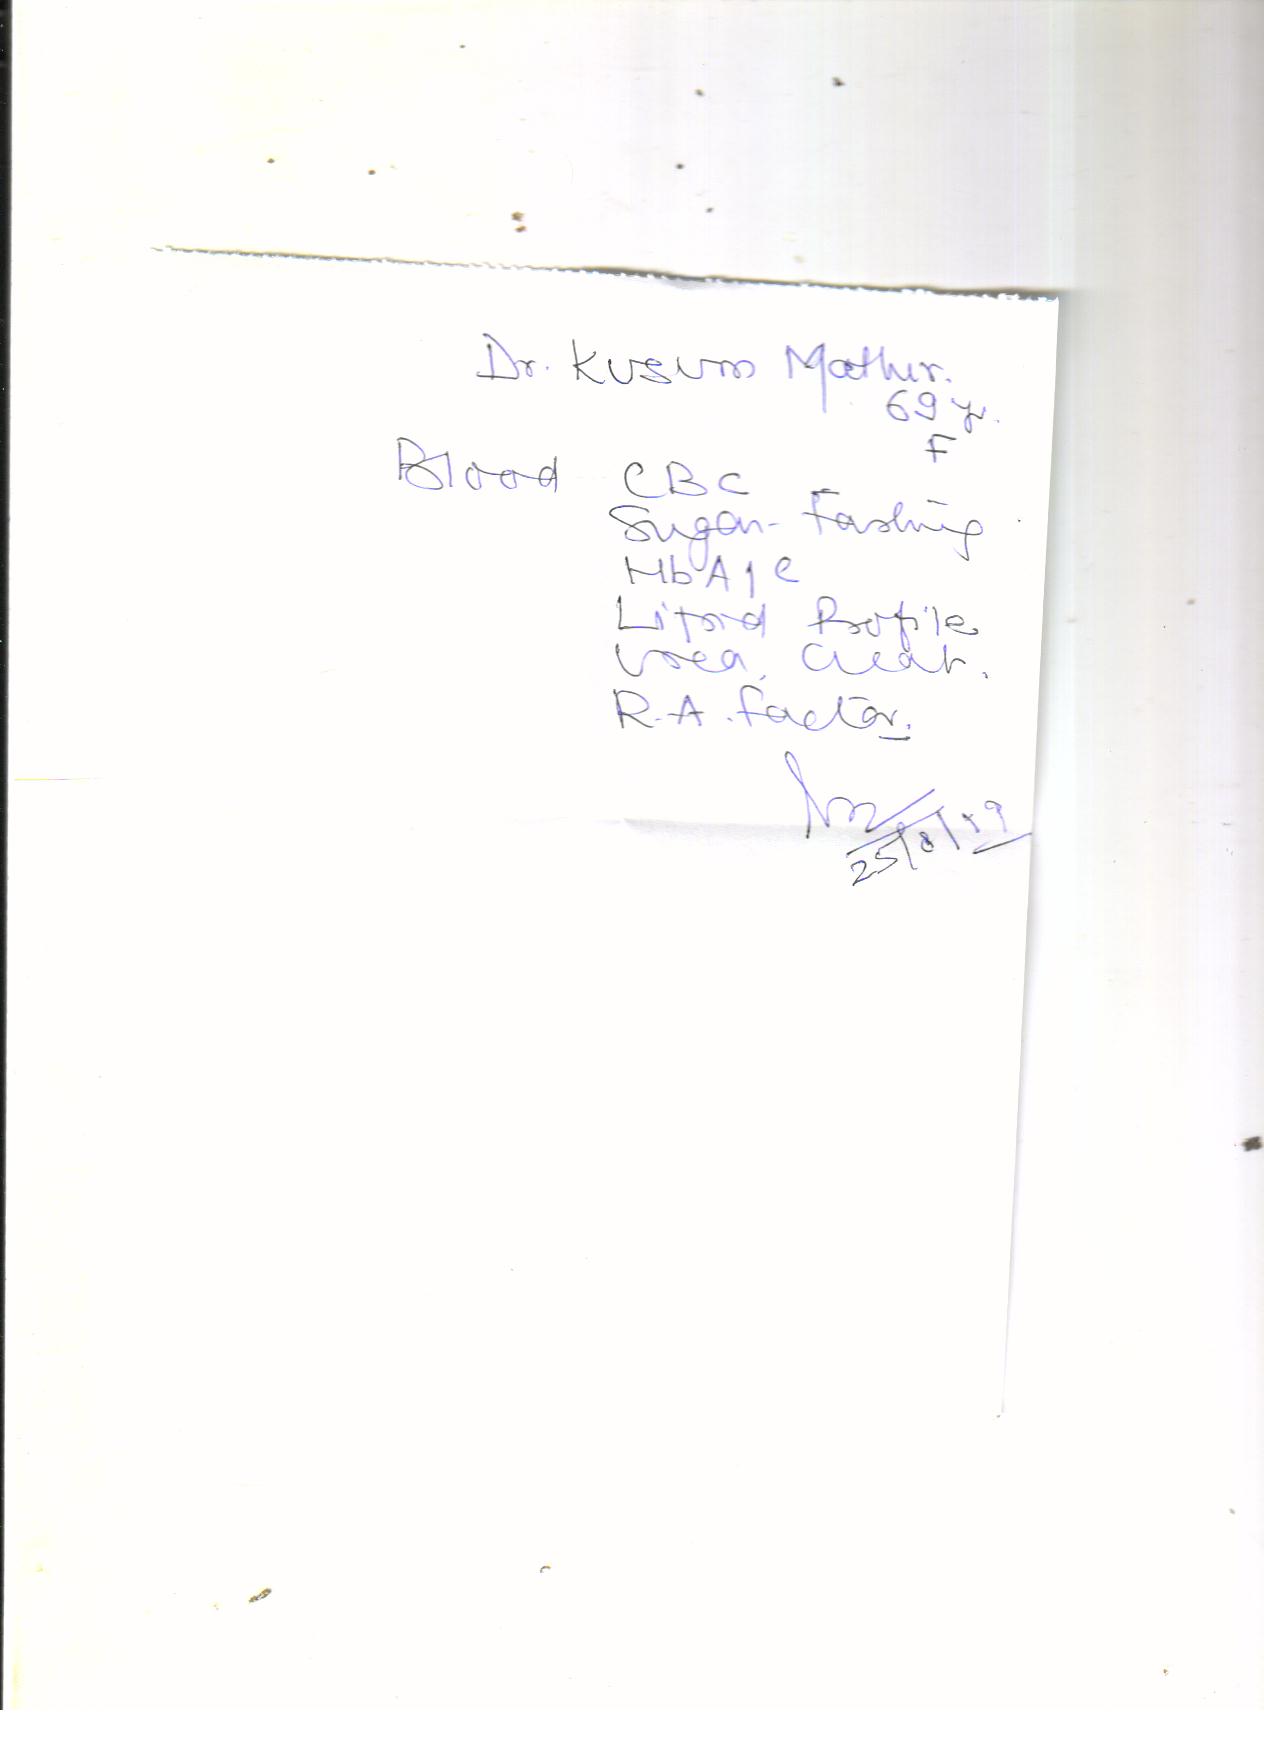 Dr. Kusum Mathur.
69 yr.
F
Blood CBC
Sugar - Fasting
HbA1C
Lipid Profile
Urea, Creat.
R.A. factor.
25/8/19